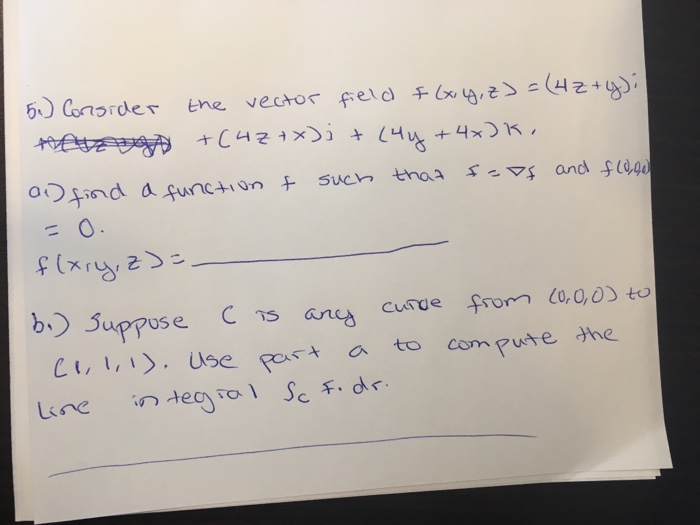 5.) Consider the vector field f(x,y,z) = (4z+y)i
+(4z+x)j + (4y+4x)k.
a.) find a function f such that f = ∇f and f(0,0,0)
= 0.
f(x,y,z)= ____
b.) Suppose C is any curve from (0,0,0) to
(1,1,1). Use part a to compute the
line integral ∫c f. dr.